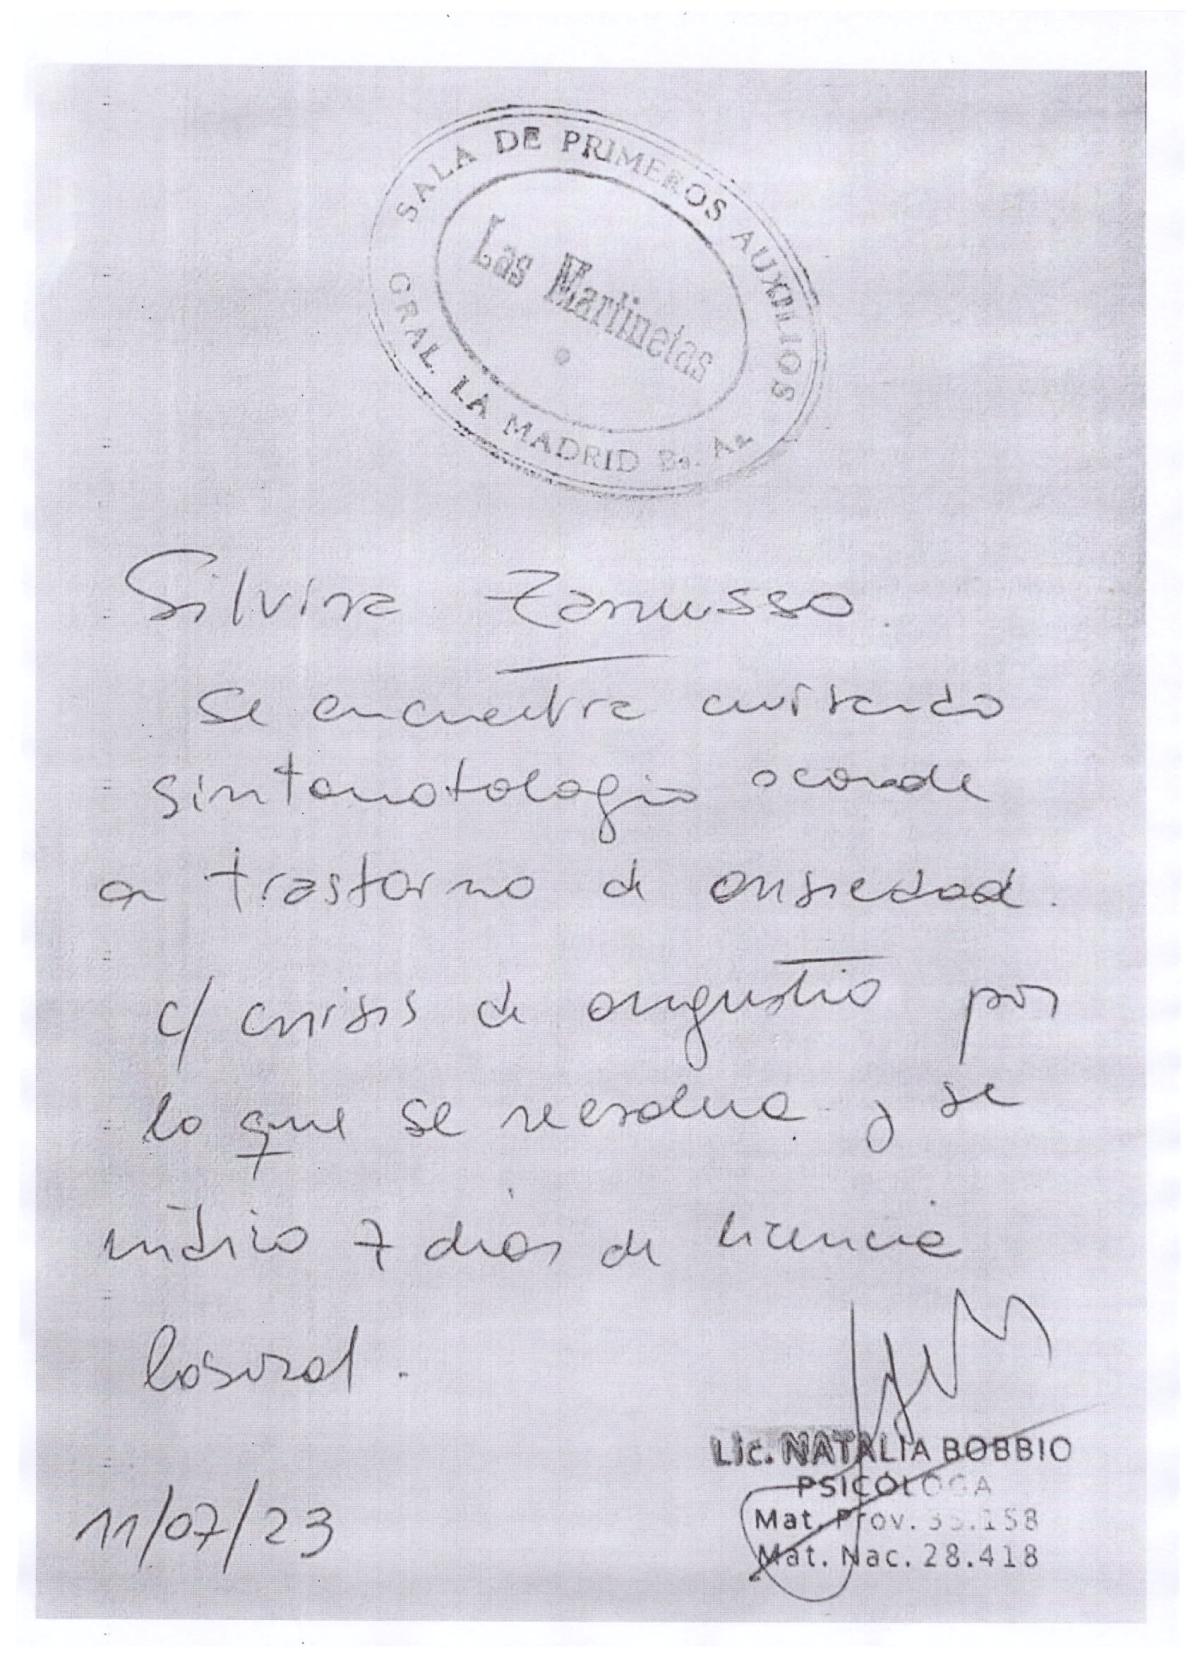 SALA DE PRIMEROS AUXILIOS
Las Martinetas
GRAL. LA MADRID Bs. As.
Silvina Zanusso.
Se encuentra cursando
sintomatologia acorde
a trastorno de ansiedad.
c/ crisis de angustia por
lo que se reevalua y se
indico 7 dias de licencia
laboral.
11/07/23
Lic. NATALIA BOBBIO
PSICÓLOGA
Mat. Prov. 35.158
Mat. Nac. 28.418